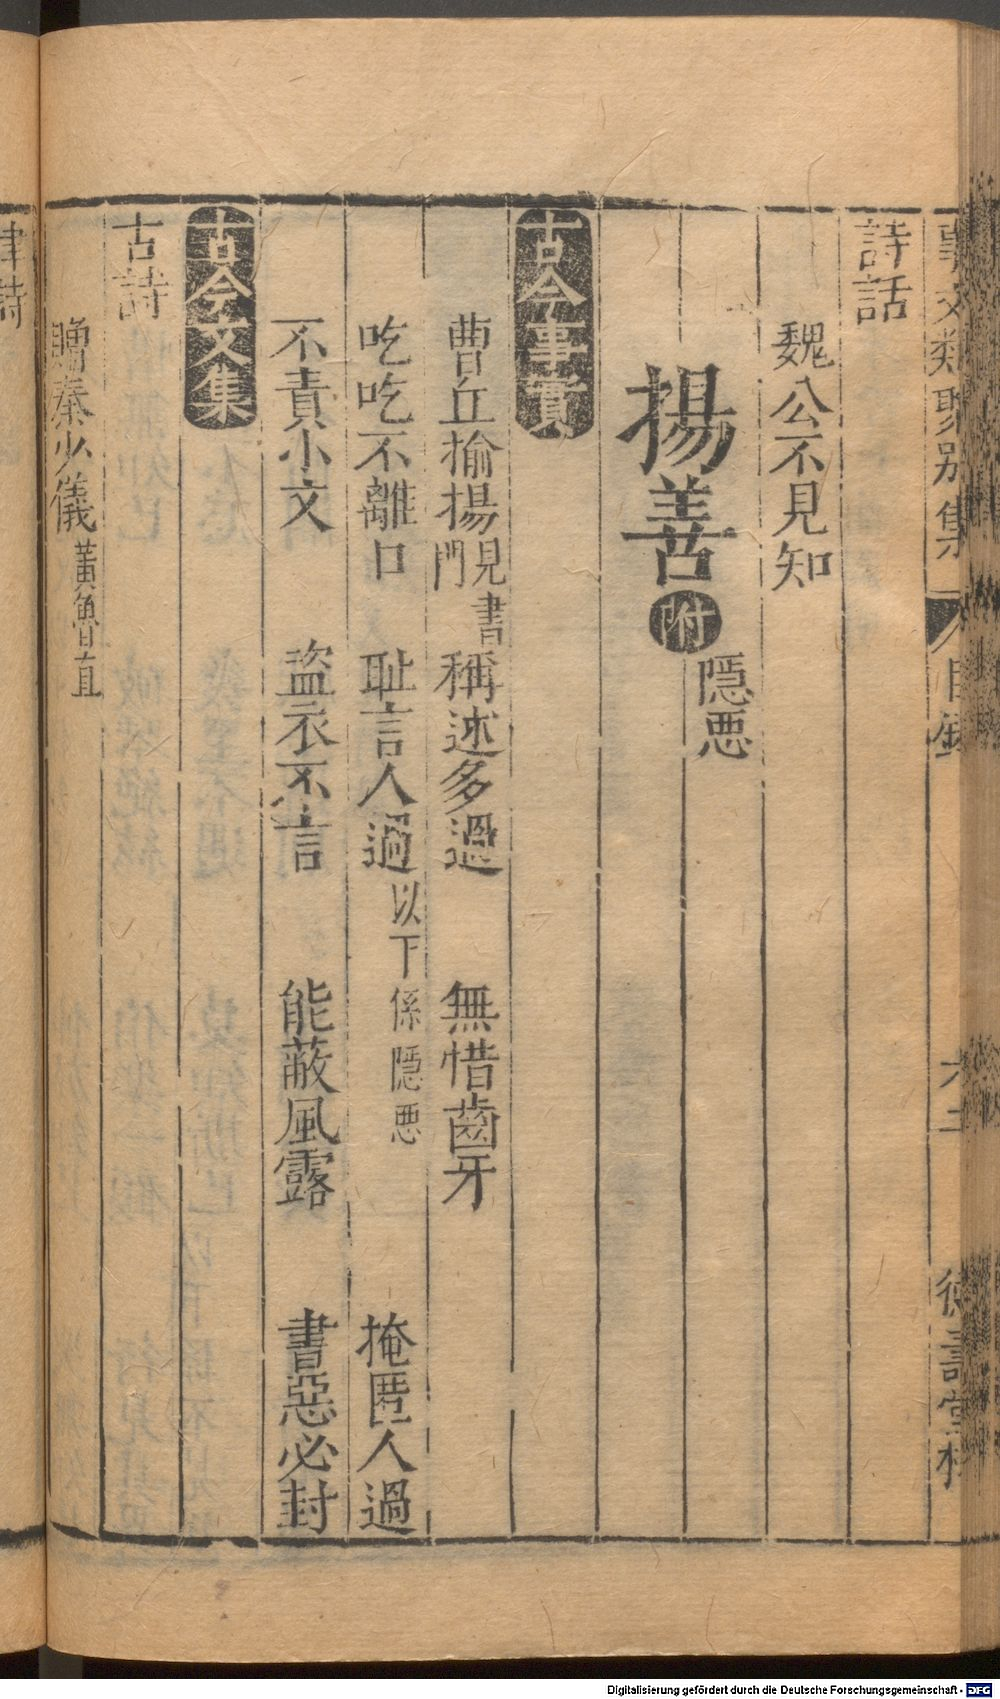 事文類聚別集　目錄　六十　德壽堂梓
詩話
魏公不見知
揚善附隱悪
古今事實
曹丘揄揚見書門　稱述多過　無惜齒牙
吃吃不離口　耻言人過以下係隱悪　掩匿人過
不責小文　盜衣不言　能蔽風露　書惡必封
古今文集
古詩
贈秦少儀黃魯直
律詩
Digitalisierung gefördert durch die Deutsche Forschungsgemeinschaft - DFG